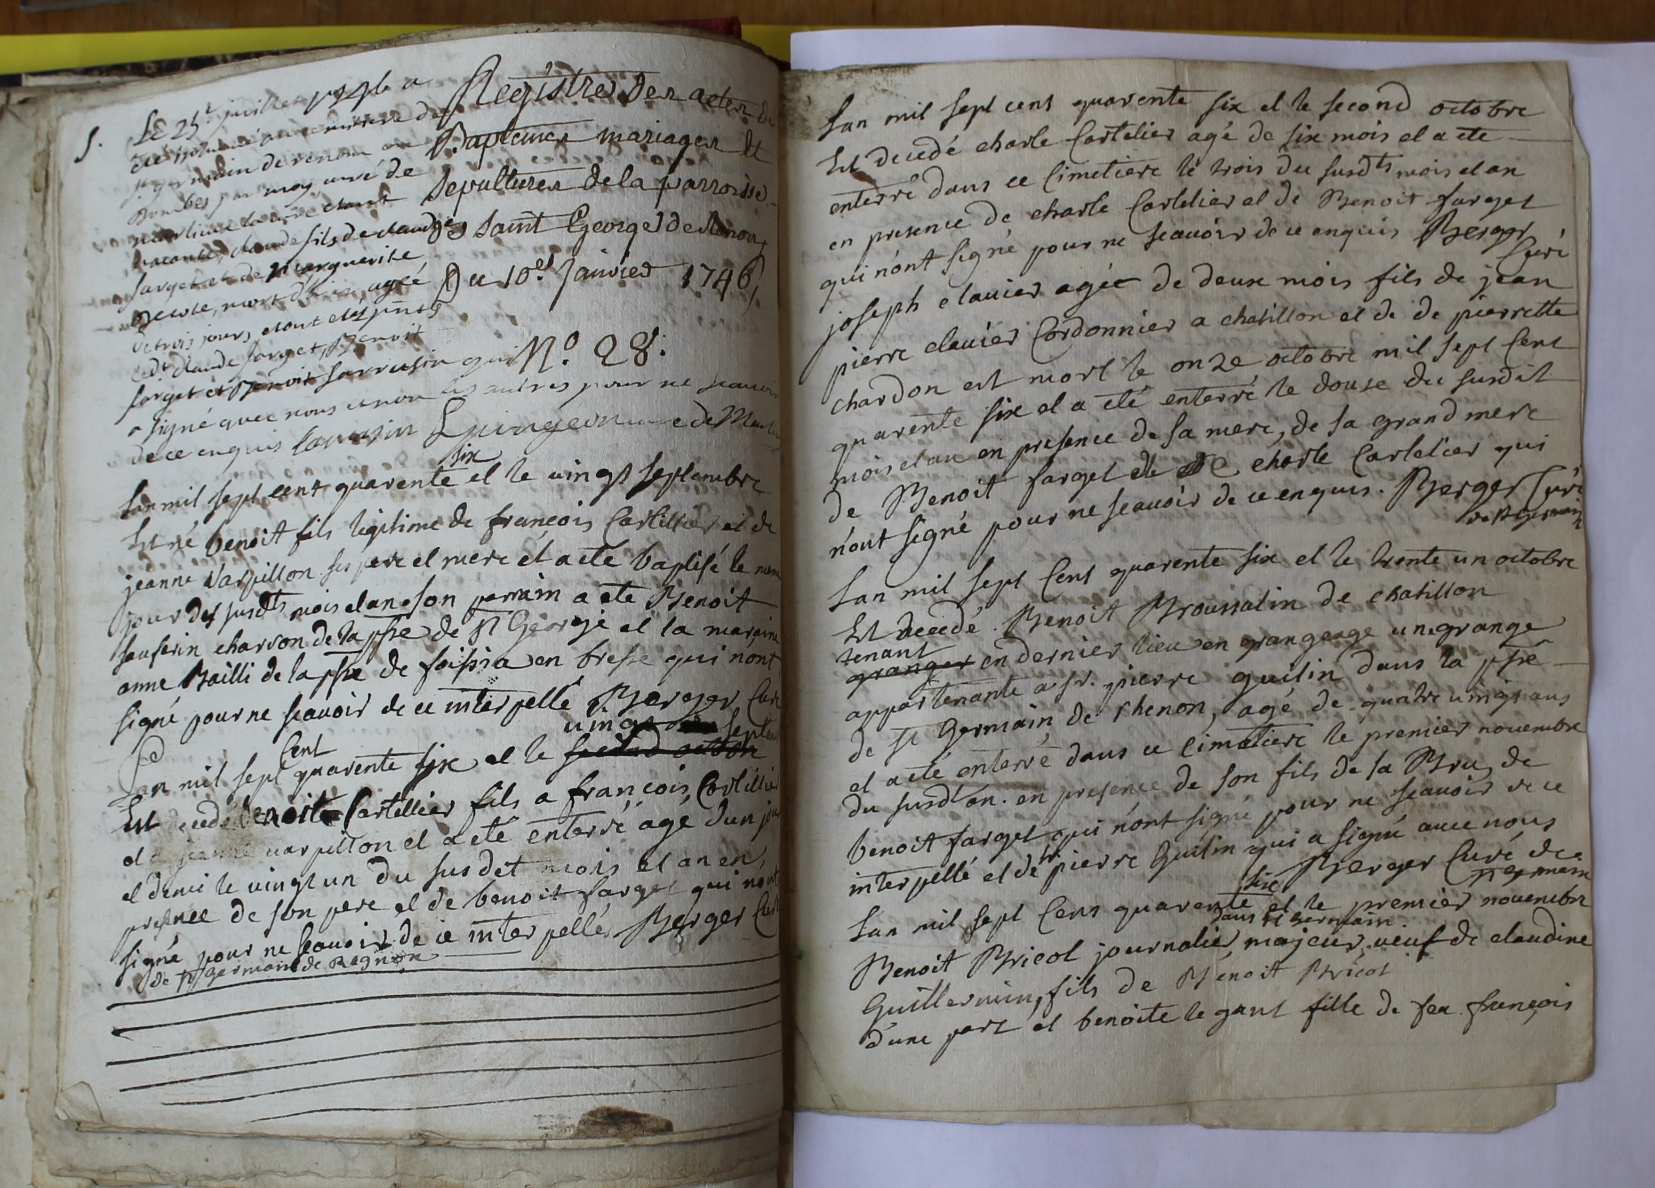 S. Le 25e juillet
Registres Des actes de
Baptemes mariages et
Sepultures de la parroisse
de saint George de Renon,
Du 10er Janvier 1746,
N.o 28.
germain de renon
Bombes par moy curé de
vacante, claude fils de claude
farget et de marguerite
mort agé
de trois jours, etant
claude farget, Benoit
farget et Benoit Sarrasin qui
a signé avec nous et non les autres pour ne scavoir
de ce enquis Sarrasin
Lan mil sept cent quarente six et le vingt septembre
Est né benoit fils legitime de françois Cartillier et de
jeanne varpillon ses pere et mere et a ete baptisé le meme
jour des susdts mois et an son parrain a ete Benoit
charron de la psse de St George et la maraine
anne Bailli de la psse de foissia en bresse qui nont
signé pour ne scavoir de ce interpellé Berger Curé
Lan mil sept Cent quarente six et le vingt septem
Est decedé benoit Cartellier fils a françois Cartillier
et a jeanne varpillon et a eté enterré agé d'un jour
et demi le vingt un du susdet mois et an en
presence de son pere et de benoit farget qui nont
signé pour ne scavoir de ce interpellé Berger Curé
de St Germain de Regnon
Lan mil sept cens quarente six et le second octobre
Est decedé charle Cartelier agé de six mois et a ete
enterré dans ce Cimetiere le trois du susdts mois et an
en presence de charle Cartelier et de Benoit farget
qui n'ont signé pour ne scavoir de ce enquis Berger
Curé
joseph clavier agée de deux mois fils de jean
pierre clavier Cordonnier a chatillon et de de pierrette
chardon est mort le onze octobre mil sept Cent
quarente six et a eté enterré le douse du susdit
mois et an en presence de sa mere, de sa grand mere
de Benoit farget et de charle Cartelier qui
n'ont signé pour ne scavoir de ce enquis. Berger Curé
de St germain
Lan mil sept Cens quarente six et le trente un octobre
Est decedé Benoit Broussatin de chatillon
tenant
granger en dernier lieu en grangeage une grange
appartenante a sr. pierre guilin dans la psse
de St Germain de Rhenon, agé de quatre vingt ans
et a eté enterré dans ce cimetiere le premier novembre
du susdt an. en presence de son fils de sa Bru de
benoit farget qui n'ont signé pour ne scavoir de ce
interpellé et de sr pierre Guilin qui a signé avec nous
Berger Curé de
St germain
Lan mil sept Cens quarente six et le premier novembre
dans St Germain.
Benoit Bricol journalier, majeur, veuf de claudine
Guillermin, fils de Bénoit Bricol
d'une part et benoite le gant fille de feu françois